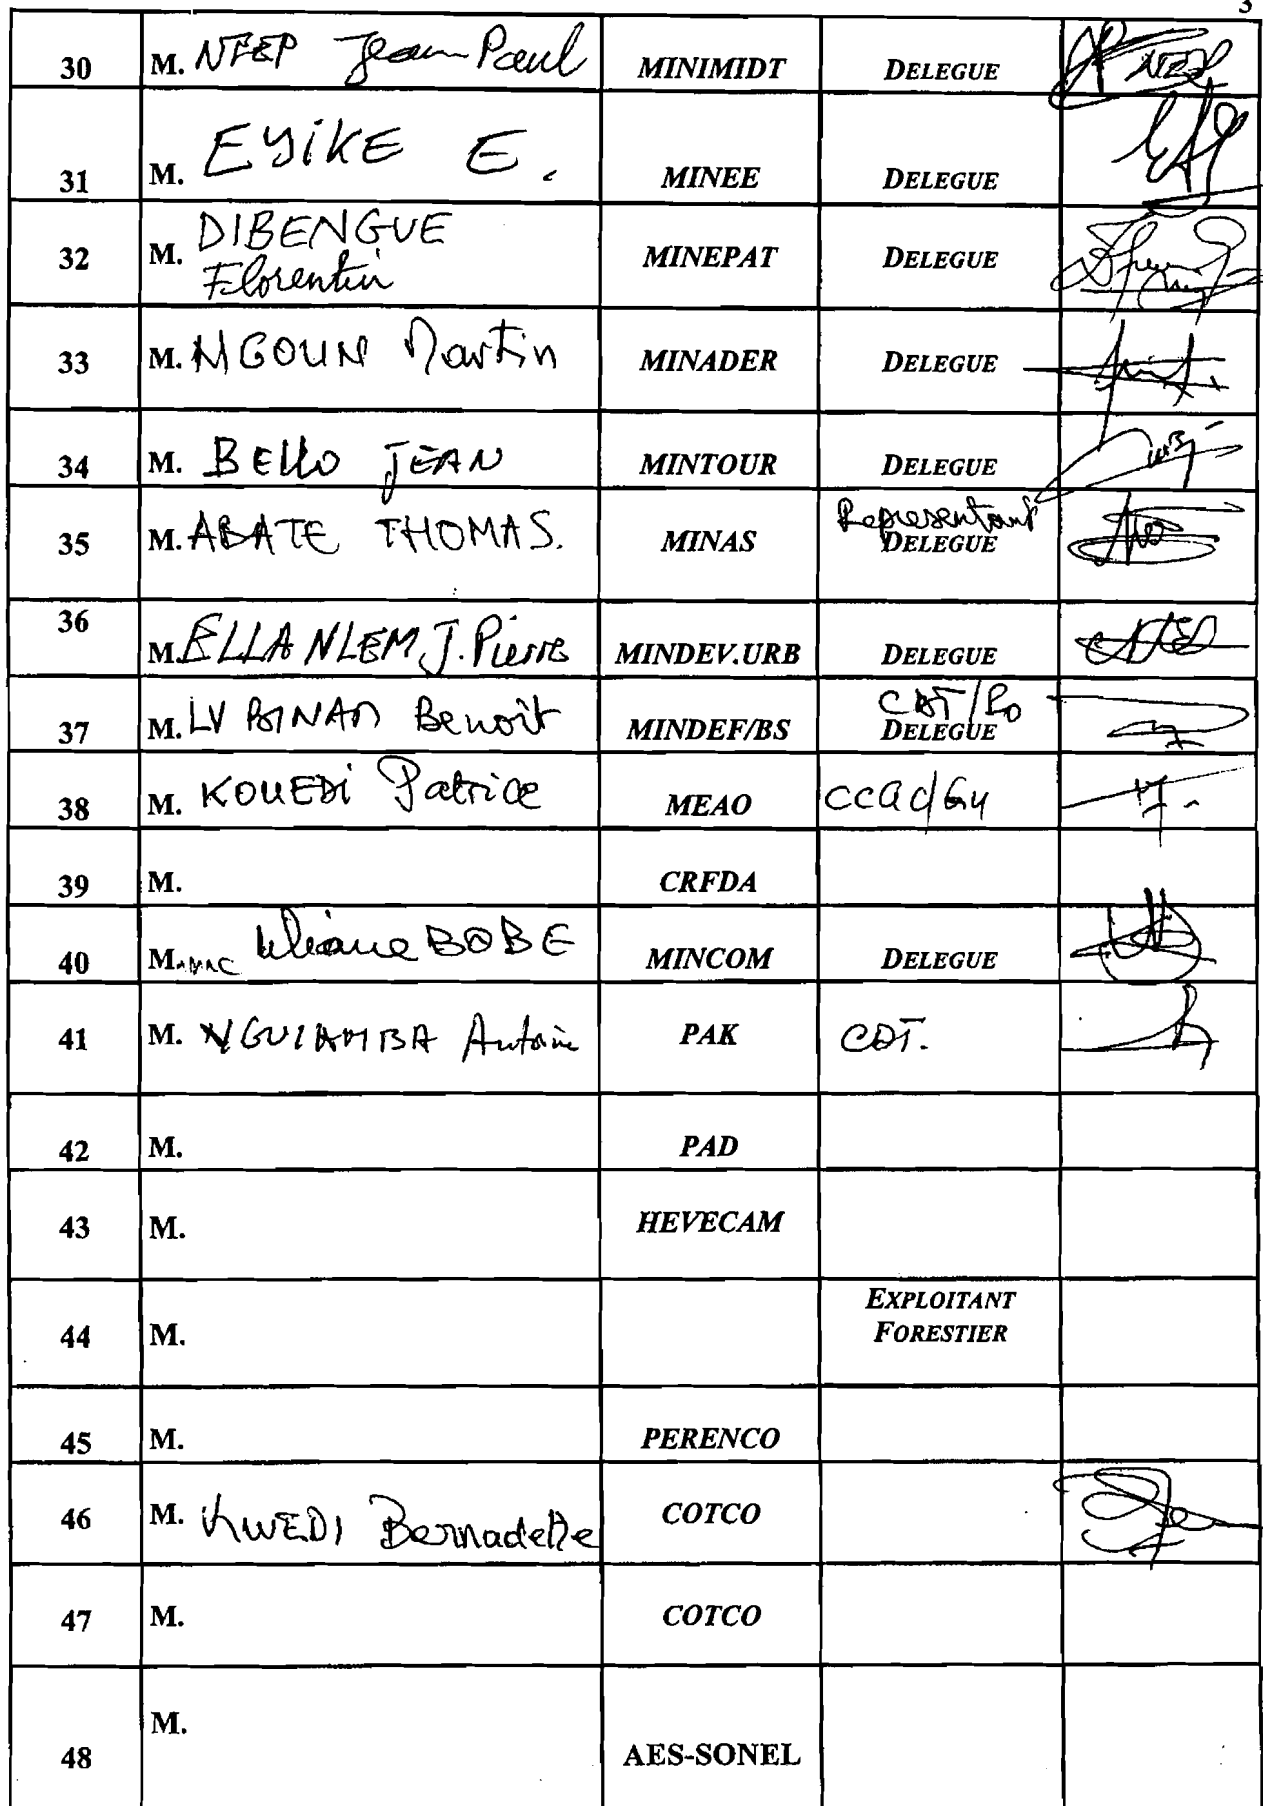 3
30 M. NFEP Jean Paul MINIMIDT DELEGUE
31 M. EYIKE E. MINEE DELEGUE
32 M. DIBENGUE Florentin MINEPAT DELEGUE
33 M. NGOUN Martin MINADER DELEGUE
34 M. BELLO JEAN MINTOUR DELEGUE
35 M. ABATE THOMAS. MINAS Representant DELEGUE
36 M. ELLA NLEM J. Pierre MINDEV.URB DELEGUE
37 M. LV Benoît MINDEF/BS CDT/ DELEGUE
38 M. KOUEDI Patrice MEAO
39 M. CRFDA
40 M. BOBE MINCOM DELEGUE
41 M. NGUIAMBA Antoine PAK CDT.
42 M. PAD
43 M. HEVECAM
44 M. EXPLOITANT FORESTIER
45 M. PERENCO
46 M. KWEDI Bernadette COTCO
47 M. COTCO
48 M. AES-SONEL